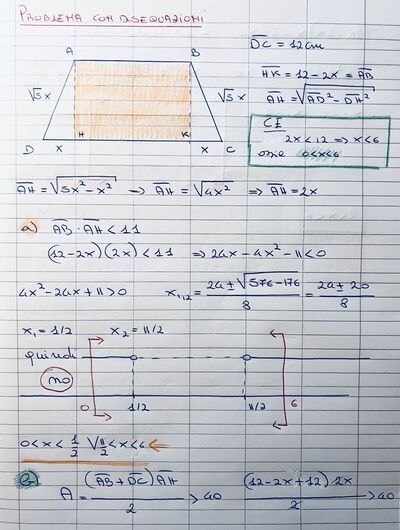 PROBLEMA CON DISEQUAZIONI
A B
√5 x √5 x
H K
D x x C
DC = 12 cm
HK = 12-2x = AB
AH = √AD² - DH²
CE
2x < 12 => x < 6
0<x<6
AH = √5x²-x² => AH = √4x² => AH = 2x
a) AB · AH < 11
(12-2x)(2x) < 11 => 24x - 4x² - 11 < 0
4x² - 24x + 11 > 0 x₁,₂ = 24 ± √576-176 / 8 = 24 ± 20 / 8
x₁ = 1/2 x₂ = 11/2
quindi
NO
0 1/2 11/2 6
0 < x < 1/2 V 11/2 < x < 6
B) A = (AB + DC) AH / 2 > 40 (12-2x+12) 2x / 2 > 40